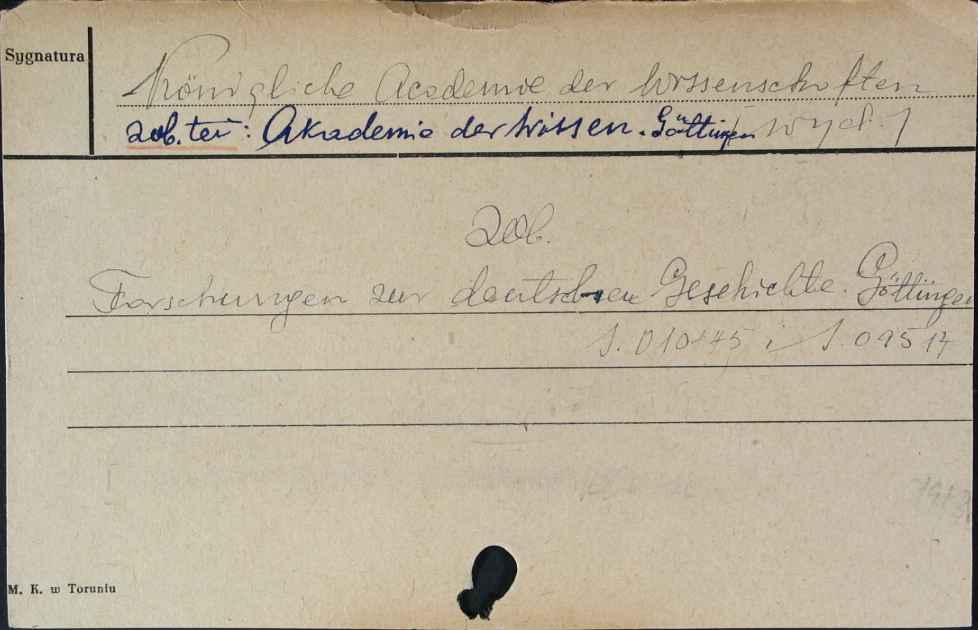 Sygnatura
Königliche Academie der Wissenschaften
zob. też: Akademie der Wissen. Göttingen [wyd.]
zob.
Forschungen zur deutschen Geschichte. Göttingen
S. 010445 i S. 09517
M. K. w Toruniu